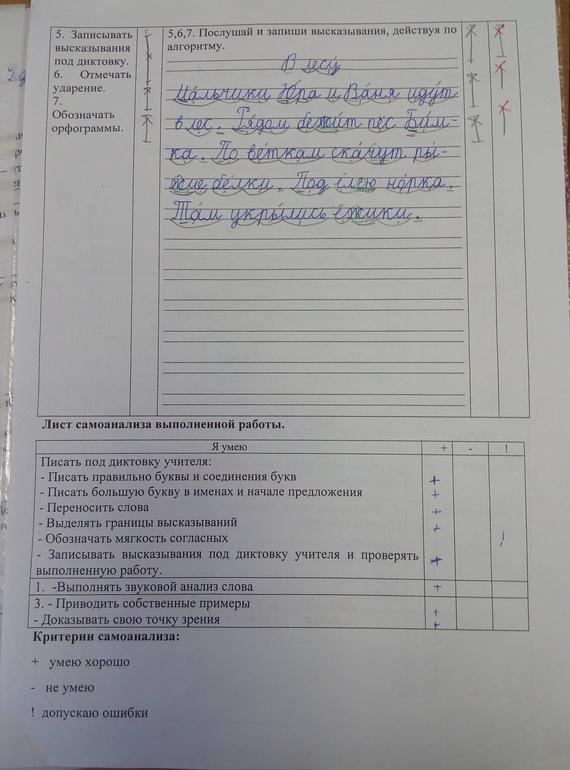 5. Записывать
высказывания
под диктовку.
6. Отмечать
ударение.
7.
Обозначать
орфограммы.
5,6,7. Послушай и запиши высказывания, действуя по
алгоритму.
В лесу
Ма́льчики Ю́ра и Ва́ня иду́т
в лес. Ря́дом бежи́т пёс Би́м-
ка. По ве́ткам ска́чут ры́-
жие бе́лки. Под е́лею но́рка.
Та́м укры́лись ёжики.
Лист самоанализа выполненной работы.
Я умею + - !
Писать под диктовку учителя:
- Писать правильно буквы и соединения букв +
- Писать большую букву в именах и начале предложения +
- Переносить слова +
- Выделять границы высказываний +
- Обозначать мягкость согласных !
- Записывать высказывания под диктовку учителя и проверять +
выполненную работу.
1. -Выполнять звуковой анализ слова +
3. - Приводить собственные примеры +
- Доказывать свою точку зрения +
Критерии самоанализа:
+ умею хорошо
- не умею
! допускаю ошибки